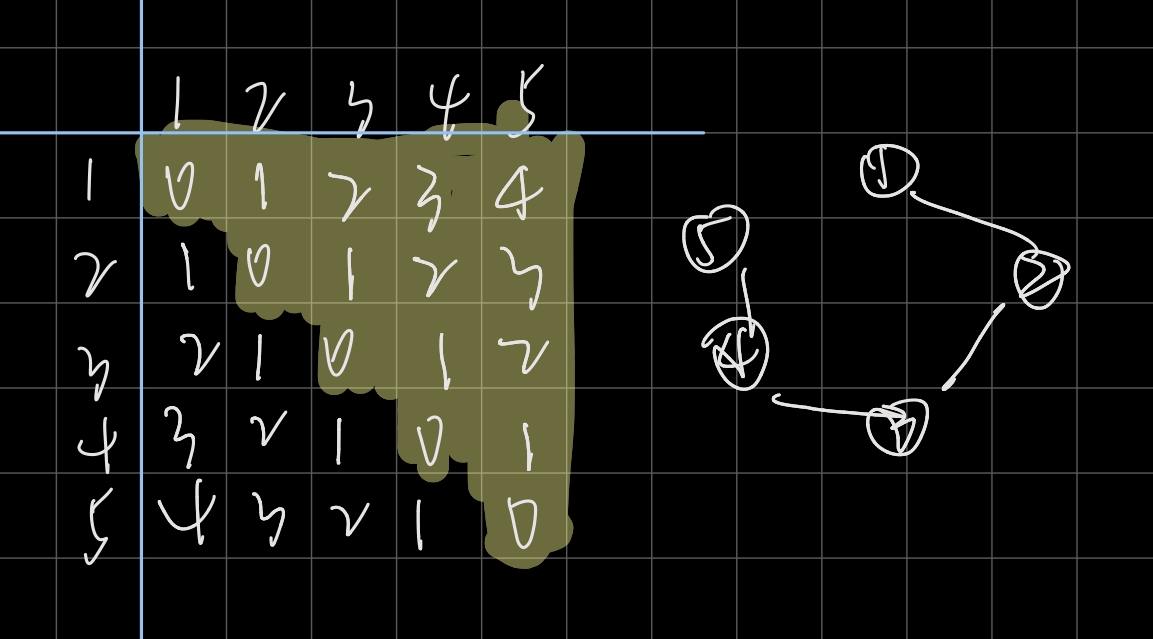 1 2 3 4 5
1 0 1 2 3 4
2 1 0 1 2 3
3 2 1 0 1 2
4 3 2 1 0 1
5 4 3 2 1 0
1
5
2
4
3